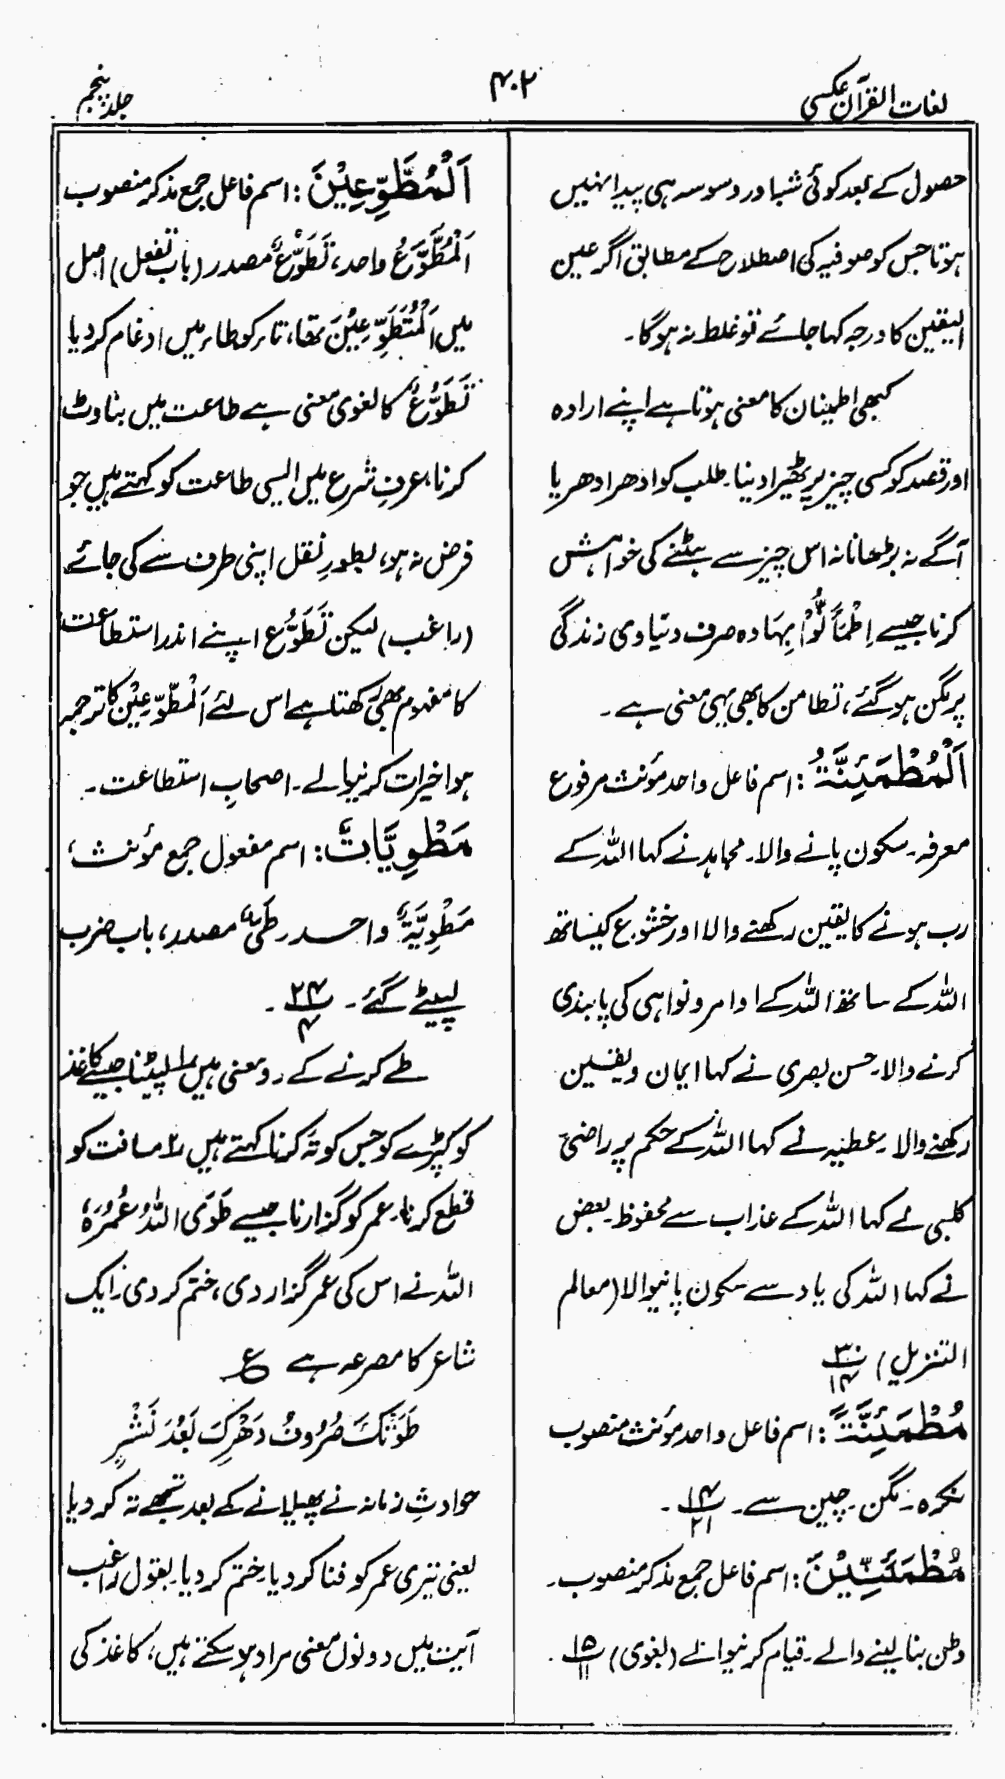 لغات القرآن عکسی
۴۰۲
جلد پنجم
حصول کے بعد کوئی شبہ اور وسوسہ ہی پیدا نہیں
ہوتا جس کو صوفیہ کی اصطلاح کے مطابق اگر عین
الیقین کا درجہ کہا جائے تو غلط نہ ہوگا۔
کبھی اطمینان کا معنی ہوتا ہے اپنے ارادہ
اور قصد کو کسی چیز پر ٹھیرا دینا۔ طلب کو ادھر ادھر یا
آگے نہ بڑھانا نہ اس چیز سے ہٹنے کی خواہش
کرنا جیسے اِطْمَأَنُّوْا بِہَا وہ صرف دنیاوی زندگی
پر مگن ہو گئے، تطامن کا بھی یہی معنی ہے۔
اَلْمُطْمَئِنَّۃُ: اسم فاعل واحد مؤنث مرفوع
معرفہ۔ سکون پانے والا۔ مجاہد نے کہا اللہ کے
رب ہونے کا یقین رکھنے والا اور خشوع کیساتھ
اللہ کے ساتھ اللہ کے اوامر و نواہی کی پابندی
کرنے والا۔ حسن بصری نے کہا ایمان و یقین
رکھنے والا۔ عطیہ نے کہا اللہ کے حکم پر راضی
کلبی نے کہا اللہ کے عذاب سے محفوظ۔ بعض
نے کہا اللہ کی یاد سے سکون پانیوالا (معالم
التنزیل) ۳۰/۱۴
مُطْمَئِنَّۃً: اسم فاعل واحد مؤنث منصوب
نکرہ۔ مگن۔ چین سے۔ ۱۴/۲۱۔
مُطْمَئِنِّیْنَ: اسم فاعل جمع مذکر منصوب۔
وطن بنا لینے والے۔ قیام کرنیوالے (بغوی) ۱۵/۱۱۔
اَلْمُطَّوِّعِیْنَ: اسم فاعل جمع مذکر منصوب
اَلْمُطَّوِّعُ واحد، تَطَوُّعٌ مصدر (باب تفعل) اصل
میں اَلْمُتَطَوِّعِیْنَ تھا، تاء کو طاء میں ادغام کر دیا
تَطَوُّعٌ کا لغوی معنی ہے طاعت میں بناوٹ
کرنا، عرفِ شرع میں ایسی طاعت کو کہتے ہیں جو
فرض نہ ہو، بطورِ نفل اپنی طرف سے کی جائے
(راغب) لیکن تَطَوُّع اپنے اندر استطاعت
کا مفہوم بھی رکھتا ہے اس لئے اَلْمُطَّوِّعِیْنَ کا ترجمہ
ہوا خیرات کرنیوالے۔ اصحابِ استطاعت۔
مَطْوِیَّاتٌ: اسم مفعول جمع مؤنث،
مَطْوِیَّۃٌ واحد۔ طَیٌّ مصدر، باب ضرب
لپیٹے گئے۔ ۲۴/۴۔
طے کرنے کے دو معنی ہیں ۱ لپیٹنا جیسے کاغذ
کو کپڑے کو جس کو تہ کرنا کہتے ہیں ۲ مسافت کو
قطع کرنا۔ عمر کو گذارنا جیسے طَوَی اللہُ عُمُرَہٗ
اللہ نے اس کی عمر گذار دی، ختم کر دی۔ ایک
شاعر کا مصرعہ ہے ع
طَوَتْکَ صُرُوْفُ دَھْرِکَ بَعْدَ نَشْرٍ
حوادثِ زمانہ نے پھیلانے کے بعد تجھے تہ کر دیا
یعنی تیری عمر کو فنا کر دیا۔ ختم کر دیا۔ بقول راغب
آیت میں دونوں معنی مراد ہو سکتے ہیں، کاغذ کی